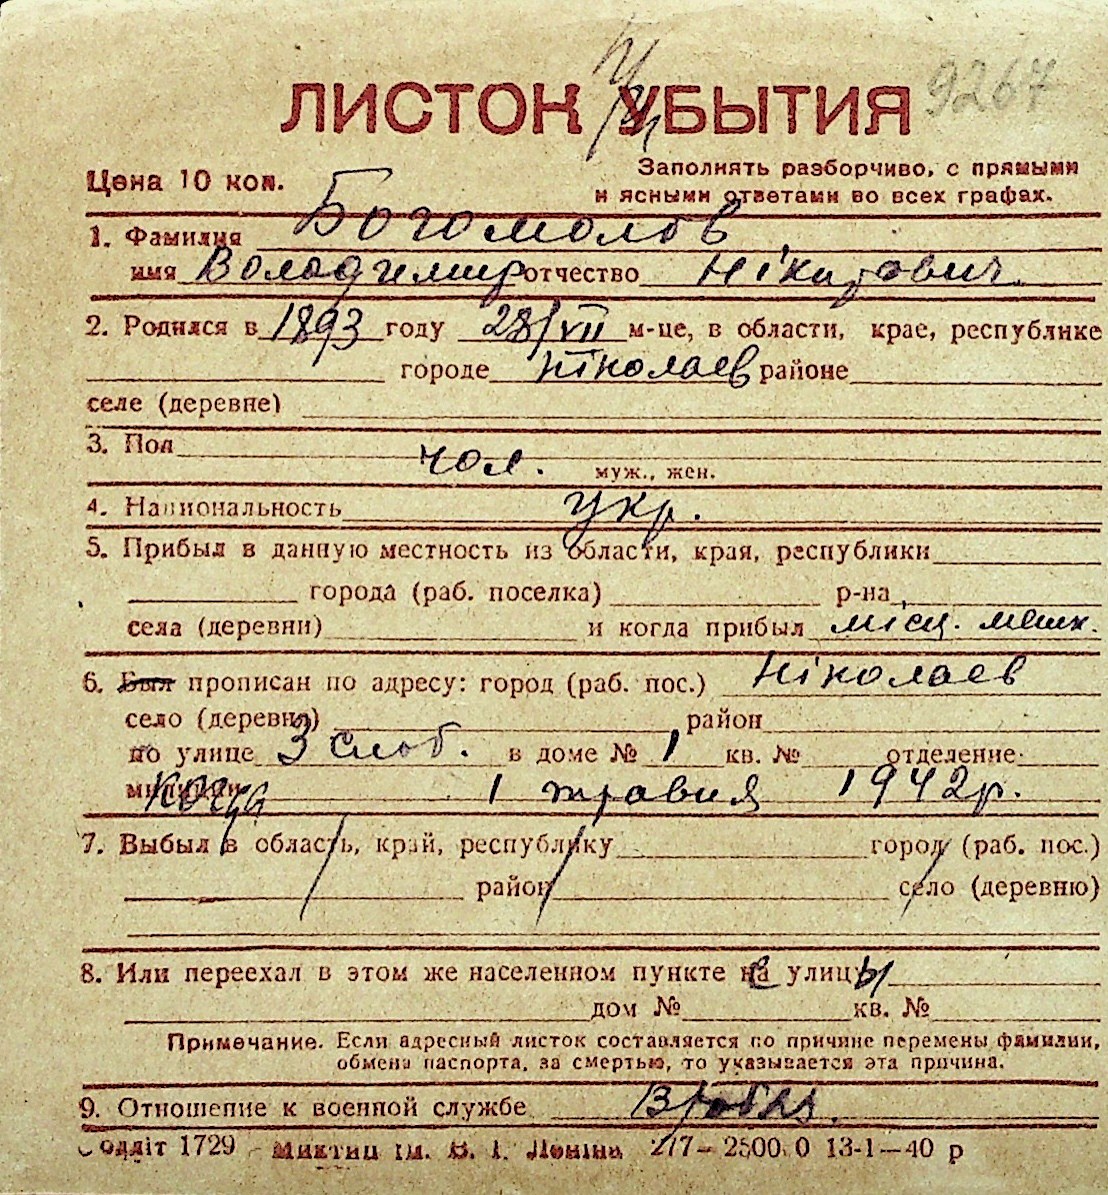 ЛИСТОК УБЫТИЯ 9267
Цена 10 коп.
Заполнять разборчиво, с прямыми
и ясными ответами во всех графах.
1. Фамилия Богомолов
имя Володимир отчество Нікитович.
2. Родился в 1893 году 28/VII м-це, в области, крае, республике
городе Ніколаев районе
селе (деревне)
3. Пол чол. муж., жен.
4. Национальность укр.
5. Прибыл в данную местность из области, края, республики
города (раб. поселка) р-на
села (деревни) и когда прибыл місц. мешк.
6. Был прописан по адресу: город (раб. пос.) Ніколаев
село (деревня) район
по улице 3 слоб. в доме № 1 кв. № отделение
милиции когда 1 травня 1942р.
7. Выбыл в область, край, республику город (раб. пос.)
район село (деревню)
8. Или переехал в этом же населенном пункте на улицу
дом № кв. №
Примечание. Если адресный листок составляется по причине перемены фамилии,
обмена паспорта, за смертью, то указывается эта причина.
9. Отношение к военной службе
Облліт 1729 Миктип ім. В. І. Леніна 277–2500.0 13-1—40 р